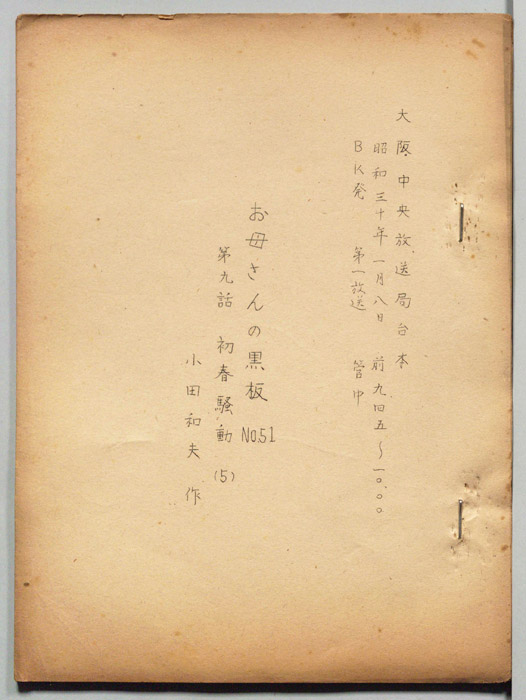 大阪中央放送局台本
昭和三十年一月八日 前九四五〜一〇.〇〇
BK発 第一放送 管中
お母さんの黒板 No.51
第九話 初春騒動(5)
小田和夫作